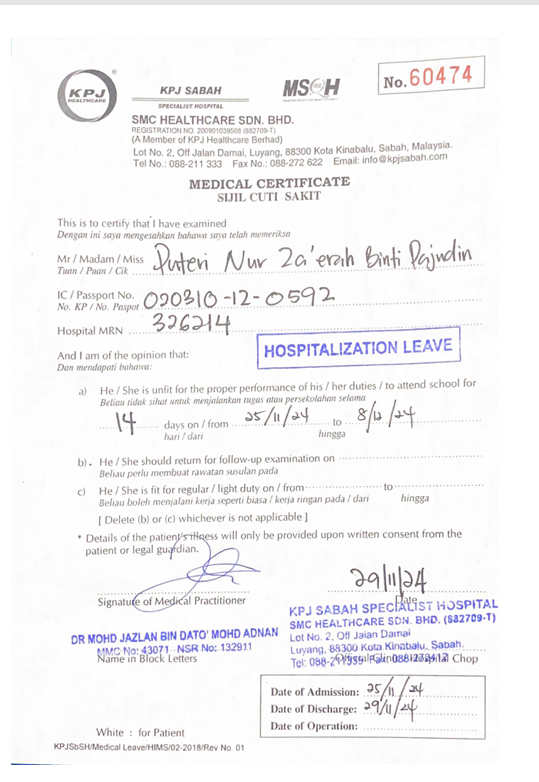 KPJ
HEALTHCARE
KPJ SABAH
SPECIALIST HOSPITAL
MSQH
No. 60474
SMC HEALTHCARE SDN. BHD.
REGISTRATION NO. 200901039568 (882709-T)
(A Member of KPJ Healthcare Berhad)
Lot No. 2, Off Jalan Damai, Luyang, 88300 Kota Kinabalu, Sabah, Malaysia.
Tel No.: 088-211 333 Fax No.: 088-272 622 Email: info@kpjsabah.com
MEDICAL CERTIFICATE
SIJIL CUTI SAKIT
This is to certify that I have examined
Dengan ini saya mengesahkan bahawa saya telah memeriksa
Mr / Madam / Miss Puteri Nur Za'erah Binti Pajudin
Tuan / Puan / Cik
IC / Passport No. 020310-12-0592
No. KP / No. Paspot
Hospital MRN 326214
And I am of the opinion that:
Dan mendapati bahawa:
HOSPITALIZATION LEAVE
a) He / She is unfit for the proper performance of his / her duties / to attend school for
Beliau tidak sihat untuk menjalankan tugas atau persekolahan selama
14 days on / from 25/11/24 to 8/12/24
hari / dari hingga
b) He / She should return for follow-up examination on
Beliau perlu membuat rawatan susulan pada
c) He / She is fit for regular / light duty on / from to
Beliau boleh menjalani kerja seperti biasa / kerja ringan pada / dari hingga
[ Delete (b) or (c) whichever is not applicable ]
* Details of the patient's illness will only be provided upon written consent from the
patient or legal guardian.
29/11/24
Signature of Medical Practitioner
Date
KPJ SABAH SPECIALIST HOSPITAL
SMC HEALTHCARE SDN. BHD. (882709-T)
Lot No. 2, Off Jalan Damai
Luyang, 88300 Kota Kinabalu, Sabah.
DR MOHD JAZLAN BIN DATO' MOHD ADNAN
MMC No: 43071 NSR No: 132911
Name in Block Letters
Tel: Chop
Date of Admission: 25/11/24
Date of Discharge: 29/11/24
Date of Operation:
White : for Patient
KPJSbSH/Medical Leave/HIMS/02-2018/Rev No. 01